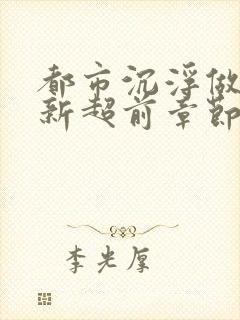 都市沉浮做
新超前章節
李光厚